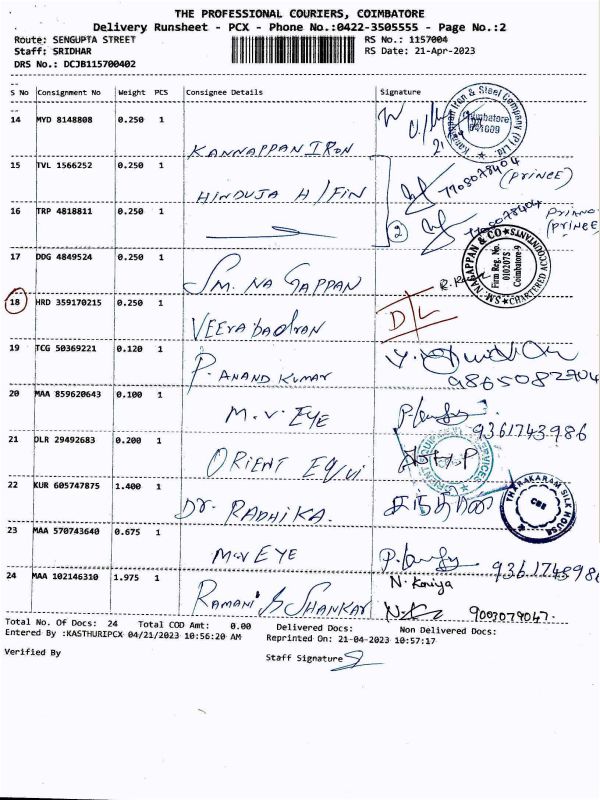 THE PROFESSIONAL COURIERS, COIMBATORE
Delivery Runsheet - PCX - Phone No.:0422-3505555 - Page No.:2
Route: SENGUPTA STREET RS No.: 1157004
Staff: SRIDHAR RS Date: 21-Apr-2023
DRS No.: DCJB115700402
S No Consignment No Weight PCS Consignee Details Signature
14 MYD 8148808 0.250 1 KANNAPPAN IRON
Kannappan Iron & Steel Company (P) Ltd. Coimbatore 641009
15 TVL 1566252 0.250 1 HINDUJA H/FIN 7708078404 (PRINCE)
16 TRP 4818811 0.250 1 2 (PRINCE)
17 DDG 4849524 0.250 1 SM. NAGAPPAN
SM. NAGAPPAN & CO CHARTERED ACCOUNTANTS Firm Reg. No. 010207S Coimbatore-9
18 HRD 359170215 0.250 1 VEERabadran D/L
19 TCG 50369221 0.120 1 P. ANAND KUMAR 9865082704
20 MAA 859620643 0.100 1 M.V. EYE 9361743986
21 DLR 29492683 0.200 1 ORIENT
22 KUR 605747875 1.400 1 DR. RADHIKA.
THARAKARAM SILK HOUSE CBE
23 MAA 570743640 0.675 1 M.V EYE 9361743986
24 MAA 102146310 1.975 1 RAMANI SHANKAR N. 9003079047.
Total No. Of Docs: 24 Total COD Amt: 0.00 Delivered Docs: Non Delivered Docs:
Entered By :KASTHURIPCX 04/21/2023 10:56:20 AM Reprinted On: 21-04-2023 10:57:17
Verified By Staff Signature